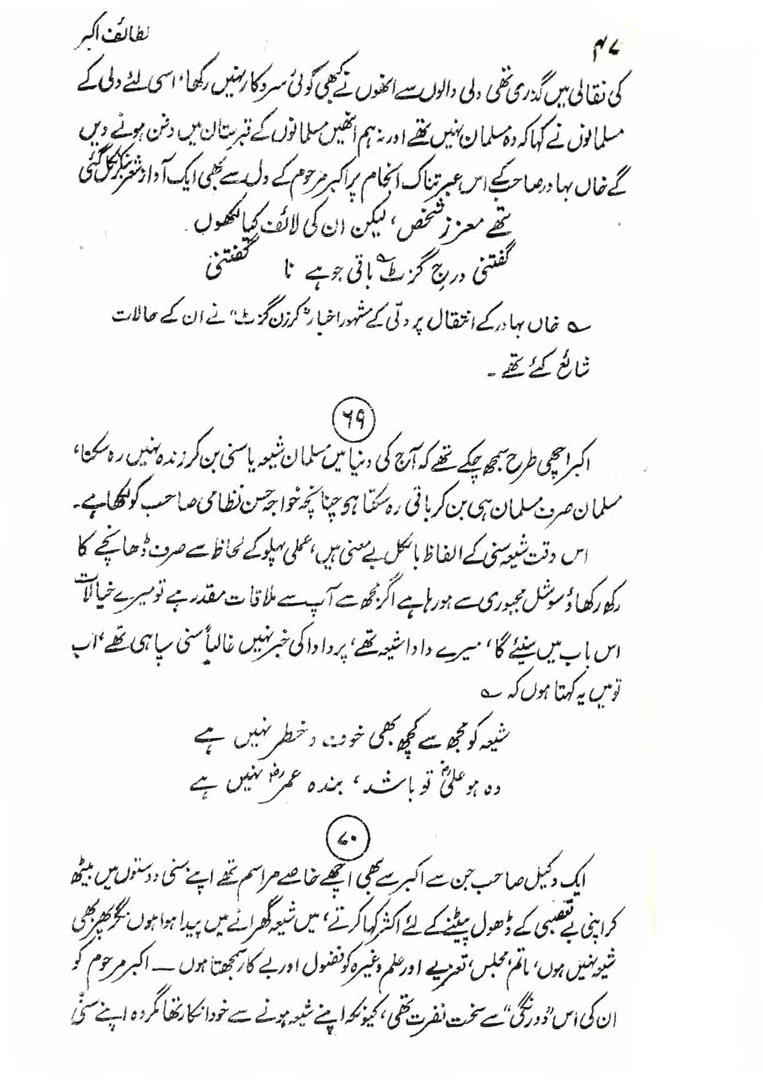 ۴۷ لطائف اکبر
کی نقالی میں گذری تھی دلی والوں سے انھوں نے کبھی کوئی سروکار نہیں رکھا، اسی لئے دلی کے
مسلمانوں نے کہا کہ وہ مسلمان نہیں تھے اور نہ ہم انھیں مسلمانوں کے قبرستان میں دفن ہونے دیں
گے خاں بہادر صاحب کے اس عبرتناک انجام پر اکبر مرحوم کے دل سے بھی ایک آواز شعر بنکر نکل گئی
تھے معزز شخص، لیکن ان کی لائف کیا لکھوں
گفتنی درج گزٹ باقی جو ہے نا گفتنی
؎ خاں بہادر کے انتقال پر دلّی کے مشہور اخبار "کرزن گزٹ" نے ان کے حالات
شائع کئے تھے ۔
۶۹
اکبر اچھی طرح سمجھ چکے تھے کہ آج کی دنیا میں مسلمان شیعہ یا سنی بن کر زندہ نہیں رہ سکتا،
مسلمان صرف مسلمان ہی بن کر باقی رہ سکتا ہو چنانچہ خواجہ حسن نظامی صاحب کو لکھا ہے۔
اس وقت شیعہ سنی کے الفاظ بالکل بے معنی ہیں، عملی پہلو کے لحاظ سے صرف ڈھانچے کا
رکھ رکھاؤ سوشل مجبوری سے ہو رہا ہے اگر مجھ سے آپ سے ملاقات مقدر ہے تو میرے خیالات
اس باب میں سنیئے گا، میرے دادا شیعہ تھے، پردادا کی خبر نہیں غالباً سنی سپاہی تھے، اب
تو میں یہ کہتا ہوں کہ ؎
شیعہ کو مجھ سے کچھ بھی خوف و خطر نہیں ہے
وہ ہو علیؓ تو باشد، بندہ عمرؓ نہیں ہے
۷۰
ایک وکیل صاحب جن سے اکبر سے بھی اچھے خاصے مراسم تھے اپنے سنی دوستوں میں بیٹھ
کر اپنی بے تعصبی کے ڈھول پیٹنے کے لئے اکثر کہا کرتے، میں شیعہ گھرانے میں پیدا ہوا ہوں مگر پھر بھی
شیعہ نہیں ہوں، ماتم، مجلس، تعزیے اور علم وغیرہ کو فضول اور بے کار سمجھتا ہوں — اکبر مرحوم کو
ان کی اس "دو رنگی" سے سخت نفرت تھی، کیونکہ اپنے شیعہ ہونے سے خود انکار تھا مگر وہ اپنے سنّی